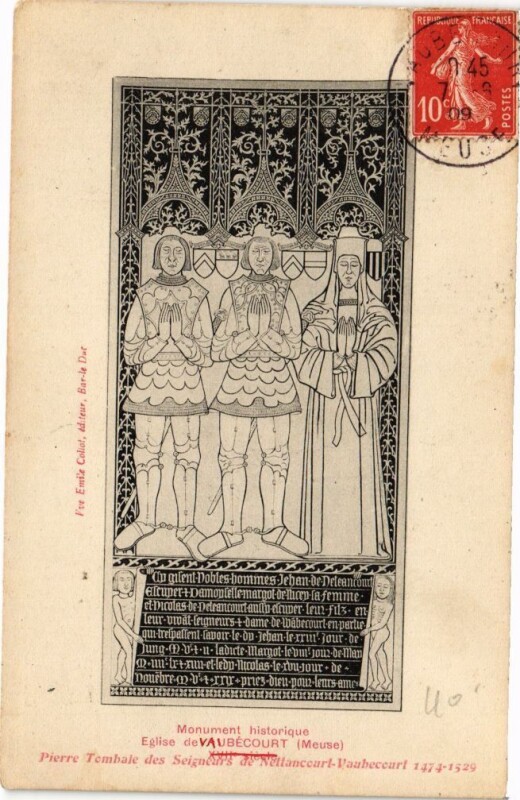 REPUBLIQUE FRANÇAISE
10c
POSTES
VAUBECOURT
45
09
MEUSE
Vve Emile Collot, éditeur, Bar-le Duc
Cy gisent Nobles hommes Jehan de Neteancourt
Escuyer & Damoyselle margot de Nicey sa femme
et Nicolas de Neteancourt aussy escuyer leur filz en
leur vivãt seigneurs & dame de Wabecourt en partie
qui trespassent savoir le dp Jehan le xxiiiᵉ jour de
Jung M vᶜ & u ladicte Margot le viiiᵉ jour de May
M iiiiᶜ lx & xiiii et ledp Nicolas le xvi jour de
Novẽbre M vᶜ & xxix priez dieu pour leurs ame
40
Monument historique
Eglise de VAUBÉCOURT (Meuse)
Pierre Tombale des Seigneurs de Nettancourt-Vaubecourt 1474-1529